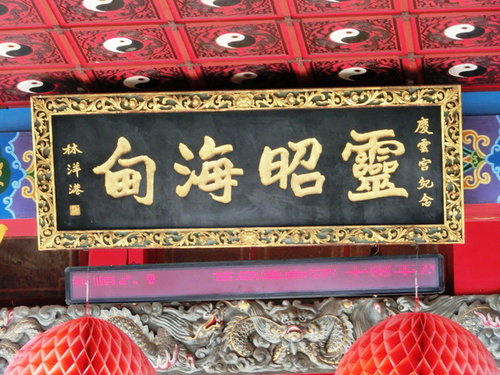 慶雲宮紀念
靈昭海甸
林洋港